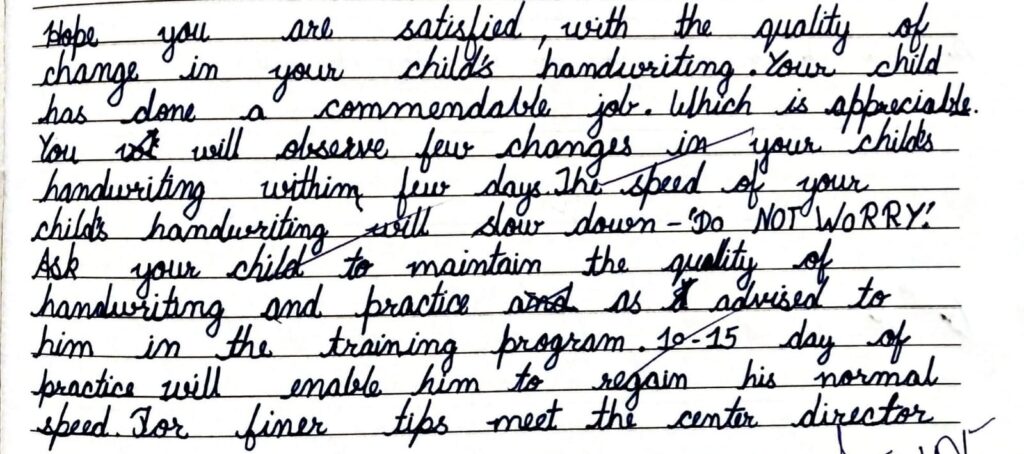 Hope you are satisfied, with the quality of
change in your child's handwriting. Your child
has done a commendable job. Which is appreciable.
You will observe few changes in your child's
handwriting within few days. The speed of your
child's handwriting will slow down - 'Do NOT WORRY!
Ask your child to maintain the quality of
handwriting and practice as advised to
him in the training program. 10-15 day of
practice will enable him to regain his normal
speed. For finer tips meet the center director